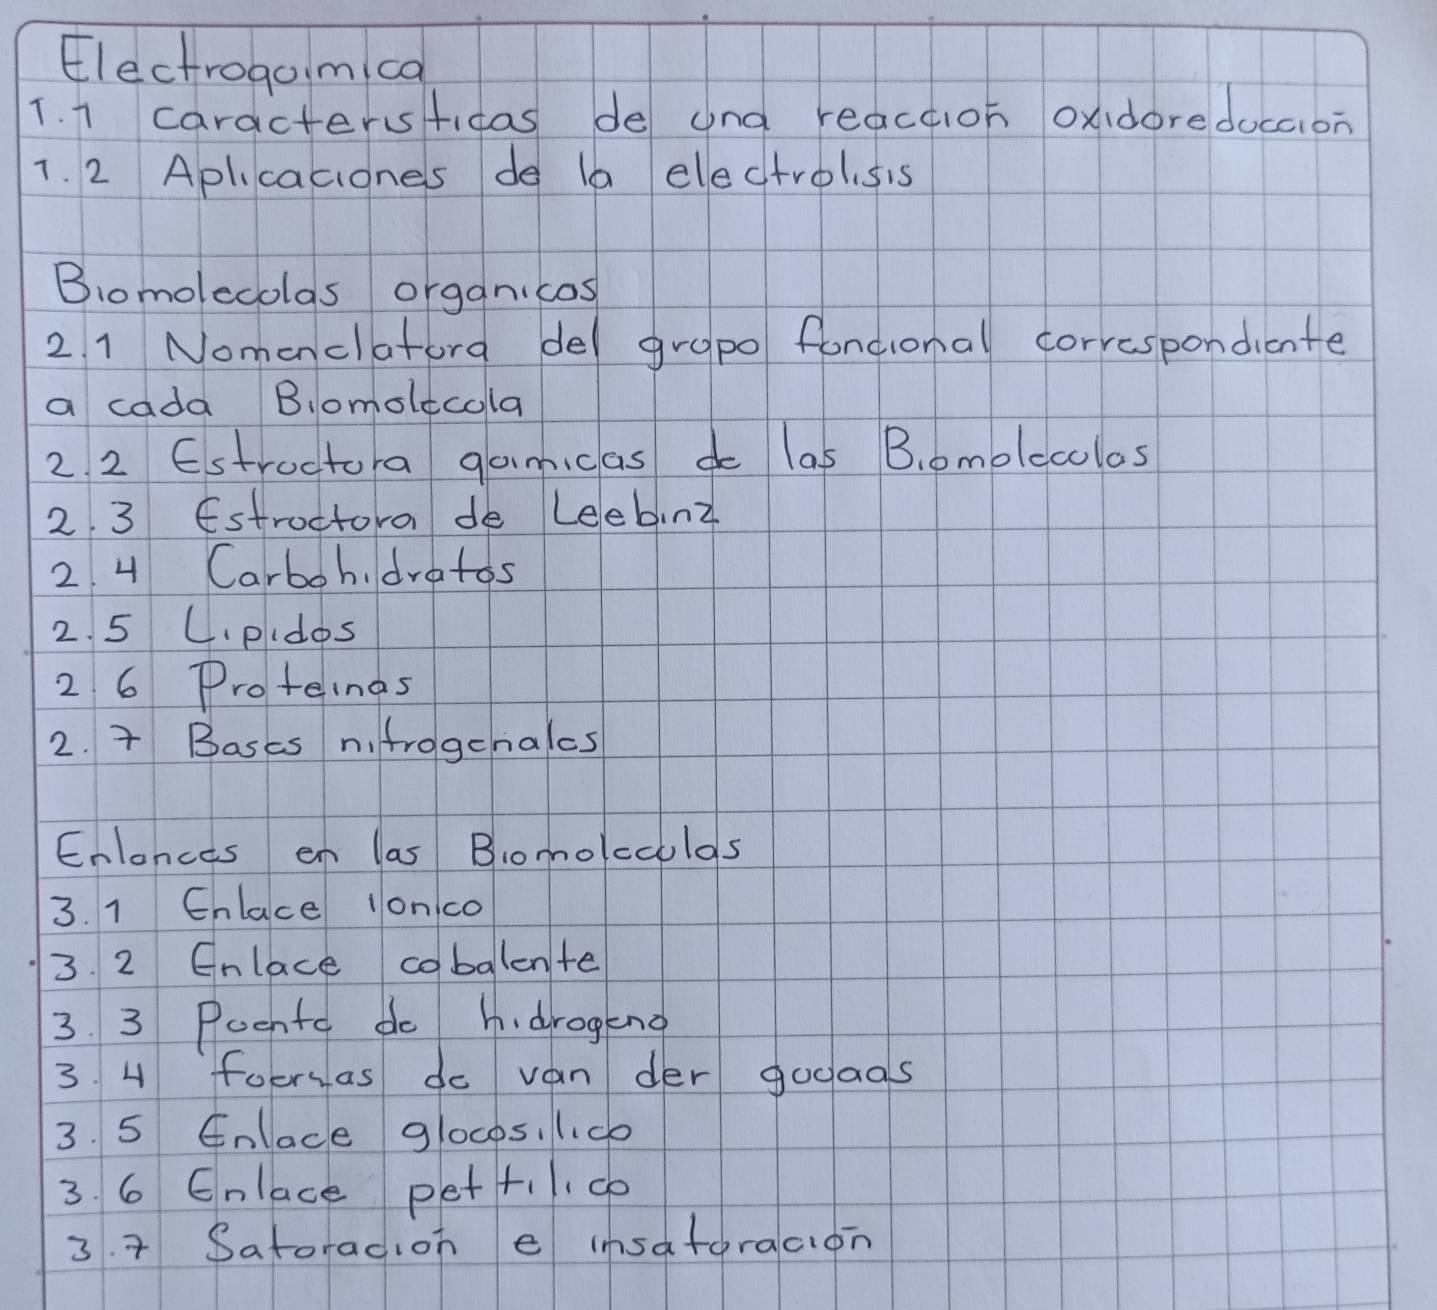 Electroquimica
1.1 caracteristicas de una reaccion oxidoreducción
1.2 Aplicaciones de la electrolisis
Biomoleculas organicas
2.1 Nomenclatura del grupo funcional correspondiente
a cada Biomolecula
2.2 Estructura quimicas de las Biomoleculas
2.3 Estructura de Leebinz
2.4 Carbohidratos
2.5 Lipidos
2.6 Proteinas
2.7 Bases nitrogenales
Enlances en las Biomoleculas
3.1 Enlace ionico
3.2 Enlace cobalente
3.3 Puente de hidrogeno
3.4 fuerzas de van der gudaas
3.5 Enlace glucosilico
3.6 Enlace pettilico
3.7 Saturacion e insaturación